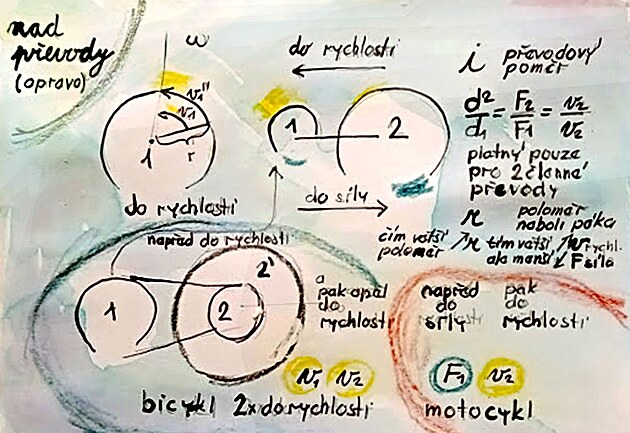 nad
převody
(opravo)
ω
v1"
v1
1
r
do rychlosti
do rychlosti
1
2
do síly
i převodový
poměr
d2/d1 = F2/F1 = v2/v2
platný pouze
pro 2členné
převody
r poloměr
naboli páka
čím větší
poloměr
r tím větší v rychl.
ale menší F síla
napřed do rychlosti
1
2
2'
a
pak opět
do
rychlosti
v1 v2
bicykl 2x do rychlosti
napřed
do
síly
pak
do
rychlosti
F1 v2
motocykl